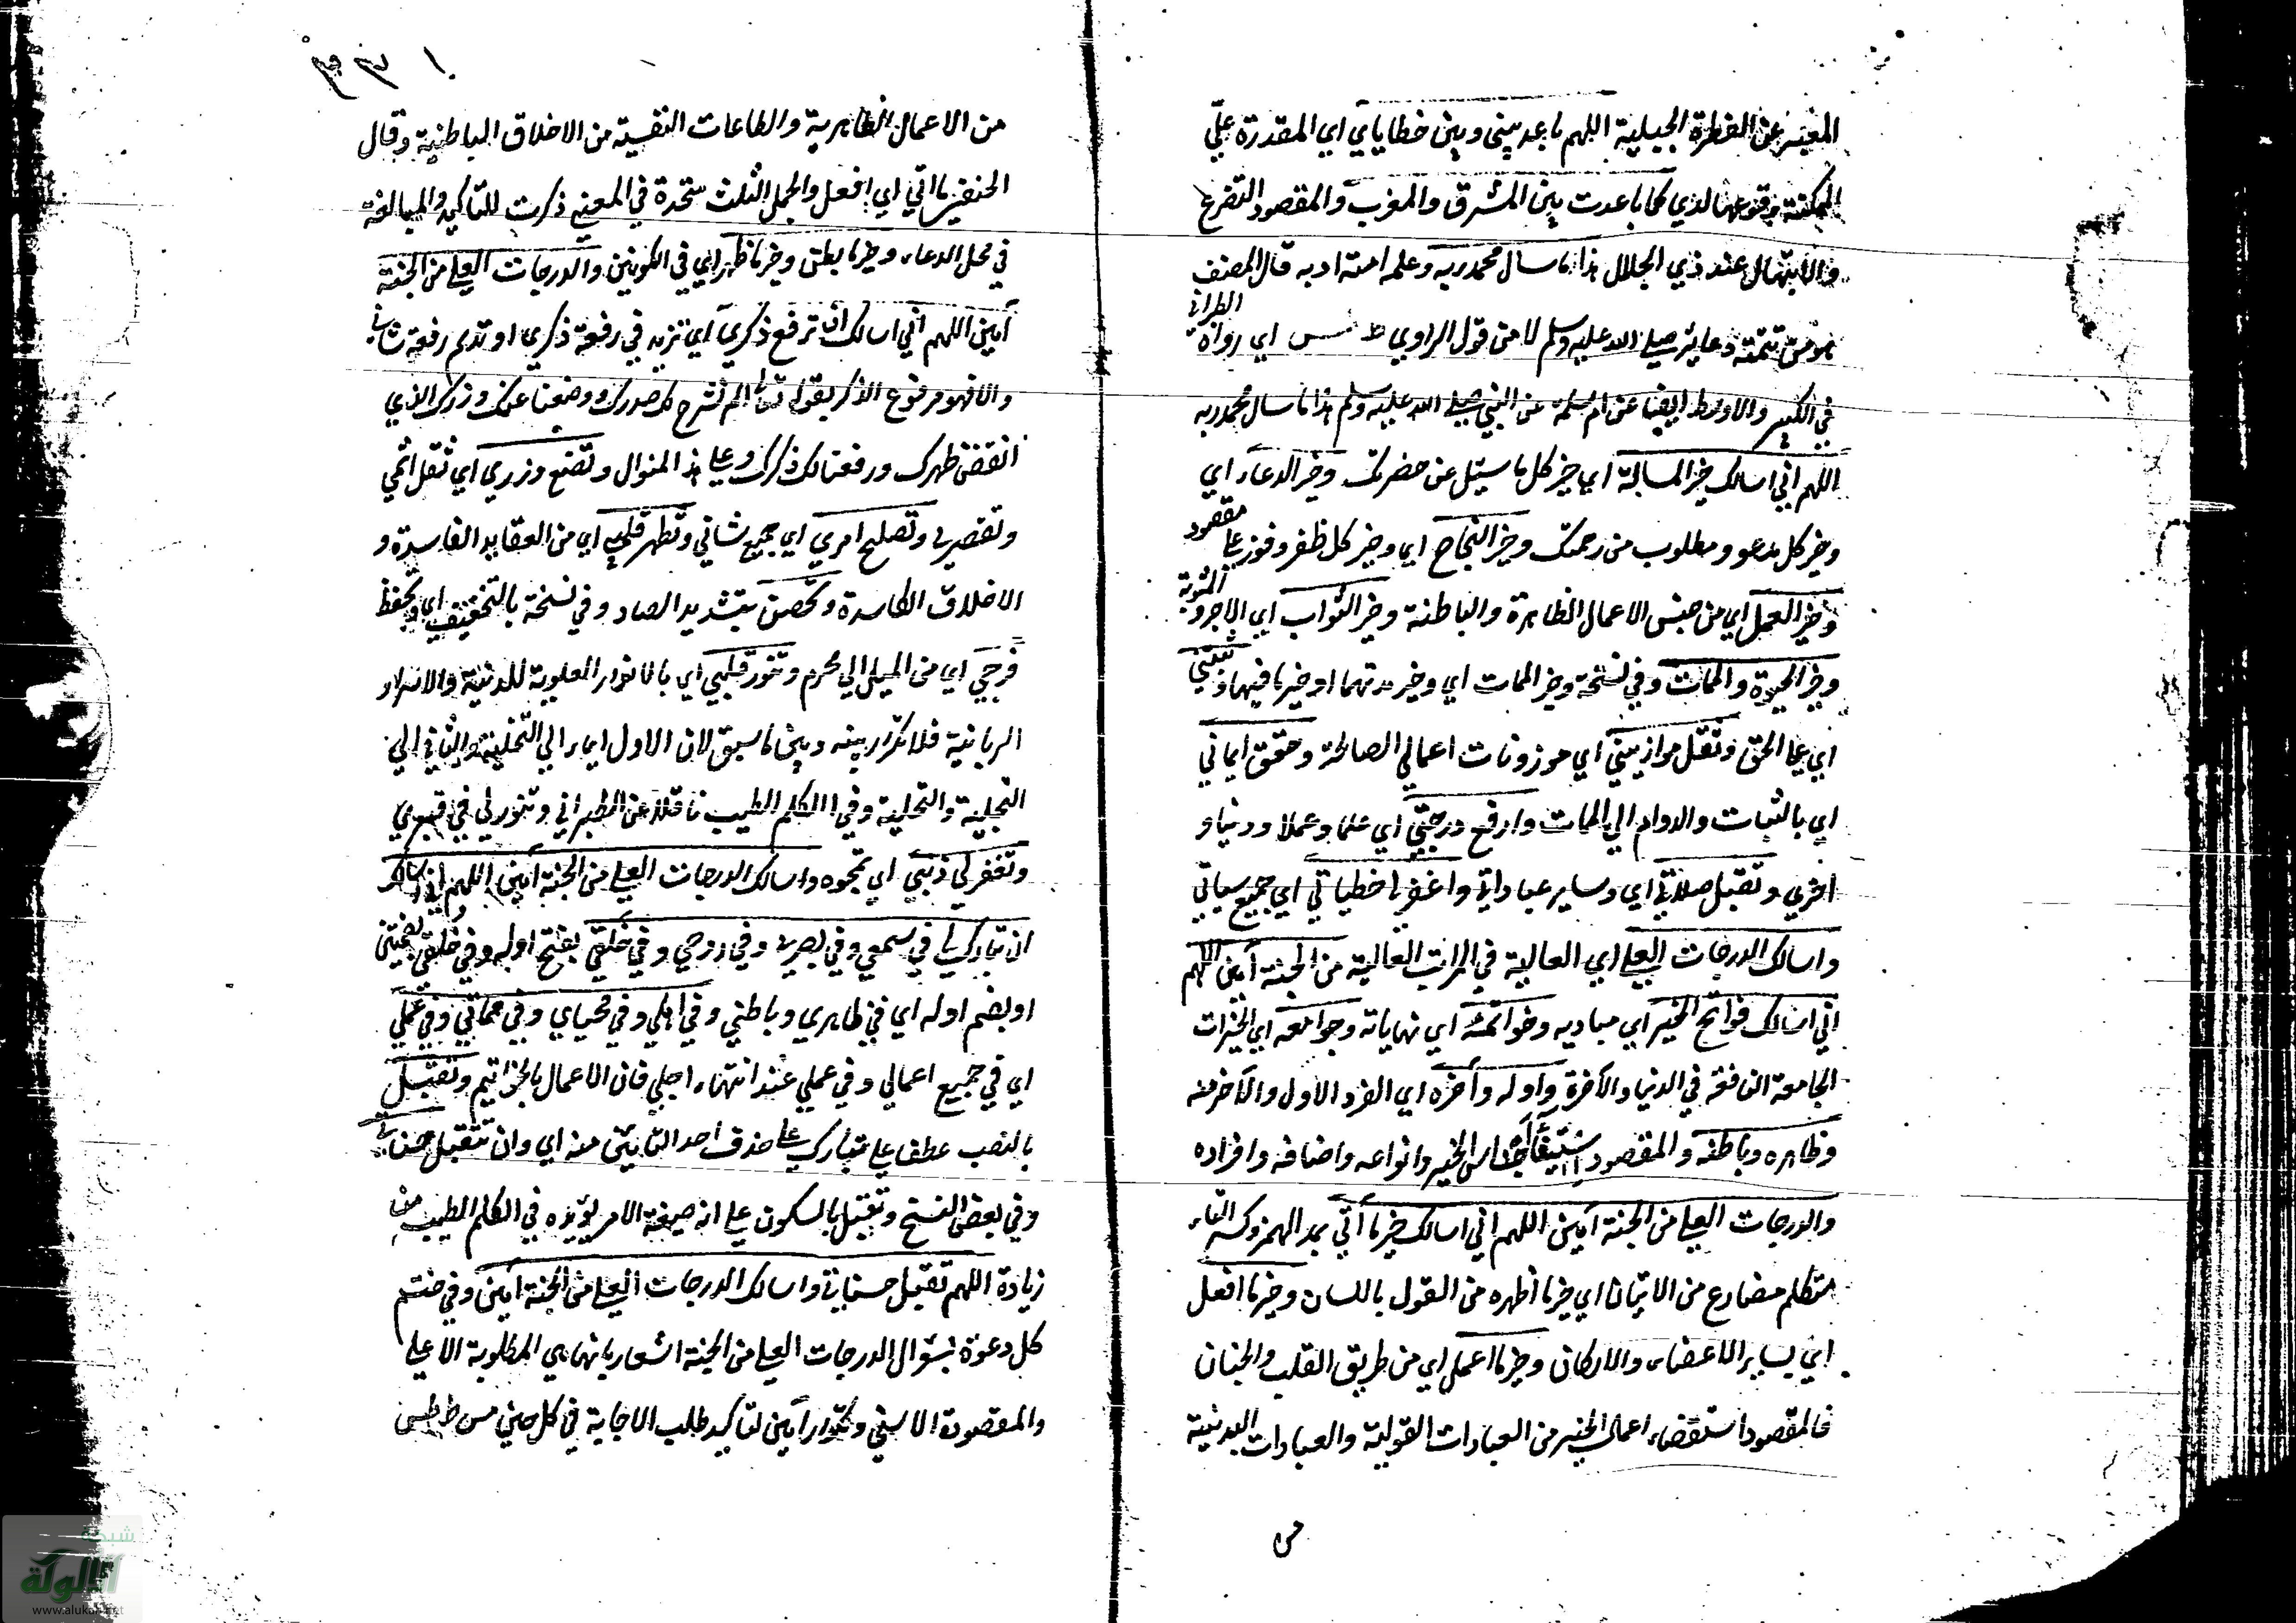 المغيّر عن الفطرة الجبلية اللهم باعد بيني وبين خطاياي اي المقدرة عليّ
الممكنة وقوعها لدي كما باعدت بين المشرق والمغرب والمقصود التضرع
والابتهال عند ذي الجلال هذا ما سال محمد ربه وعلم امته ادبه قال المصنف
هو من تتمة دعايه صلى الله عليه وسلم لا من قول الراوي ط طس اي رواه الطبراني
في الكبير والاوسط ايضا عن ام سلمة عن النبي صلى الله عليه وسلم هذا ما سال محمد ربه
اللهم اني اسالك خير المسالة اي خير كل ما سيئل عن حضرتك وخير الدعاء اي
وخير كل مدعو ومطلوب من رحمتك وخير النجاح اي وخير كل ظفر وفوز على مقصود
وخير العمل اي من جنس الاعمال الظاهرة والباطنة وخير الثواب اي الاجر والمثوبة
وخير الحيوة والممات وفي نسخة وخير الممات اي وخير مدتهما او خير ما فيهما وثبتني
اي على الحق وثقل موازيني اي موزونات اعمالي الصالحة وحقق ايماني
اي بالثبات والدوام الي الممات وارفع درجتي اي علما وعملا ودنيا و
اخري وتقبل صلاتي اي وساير عباداتي واغفر لي خطياتي اي جميع سياتي
واسالك الدرجات العلي اي العالية في المراتب الغالية من الجنة آمين اللهم
اني اسالك فواتح الخير اي مباديه وخواتمه اي نهاياته وجوامعه اي الخيرات
الجامعة النافعة في الدنيا والآخرة واوله وآخره اي الفرد الاول والآخر منه
وظاهره وباطنه والمقصود استيفاء اجناس الخير وانواعه واصنافه وافراده
والدرجات العلي من الجنة آمين اللهم اني اسالك خير ما آتي بمد الهمز وكسر التاء
متكلم مضارع من الاتيان اي خير ما اظهره من القول باللسان وخير ما افعل
اي بساير الاعضاء والاركان وخير ما اعمل اي من طريق القلب والجنان
فالمقصود استقصاء اعمال الخير من العبادات القولية والعبادات البدنية
من
من الاعمال الظاهرية والطاعات النفسية من الاخلاق الباطنية وقال
الحنفي ما آتي اي افعل والجمل الثلث متحدة في المعنى ذكرت للتاكيد والمبالغة
في محل الدعاء وخير ما بطن وخير ما ظهر اي في الكونين والدرجات العلي من الجنة
آمين اللهم اني اسالك ان ترفع ذكري اي تزيد في رفعة ذكري او تديم رفعة شاني
والا فهو مرفوع الذكر بقوله تعالى الم نشرح لك صدرك ووضعنا عنك وزرك الذي
انقض ظهرك ورفعنا لك ذكرك وعلى هذا المنوال وتضع وزري اي ثقل اثمي
وتقصيري وتصلح امري اي جميع شاني وتطهر قلبي اي من العقايد الفاسدة و
الاخلاق الكاسدة وتحصن بتشديد الصاد وفي نسخة بالتخفيف اي وتحفظ
فرجي اي من الميل الي محرم وتنور قلبي اي بالانوار العلوية اللدنية والاسرار
الربانية فلا تكرار بينه وبين ما سبق لان الاول ايماء الي التخلية والثاني الي
التجلية والتحلية وفي الكلم الطيب ناقلا عن الطبراني وتنور لي في قبري
وتغفر لي ذنبي اي تمحوه واسالك الدرجات العلي من الجنة آمين اللهم اني اسالك
ان تبارك لي في سمعي وفي بصري وفي روحي وفي خلقي بفتح اوله وفي خلقي بضمتين
او بضم اوله اي في ظاهري وباطني وفي اهلي وفي محياي وفي مماتي وفي عملي
اي في جميع اعمالي وفي عملي عند انتهاء اجلي فان الاعمال بالخواتيم وتقبل
بالنصب عطف على تبارك على حذف احد التائين منه اي وان تتقبل حسناتي
وفي بعض النسخ وتقبل بالسكون على انه صيغة الامر يؤيده في الكلم الطيب من
زيادة اللهم تقبل حسناتي واسالك الدرجات العلي من الجنة آمين وفي ختم
كل دعوة بسؤال الدرجات العلي من الجنة اشعار بانها هي المطلوبة الاعلي
والمقصودة الاسني وتكرار آمين لتاكيد طلب الاجابة في كل حين مس ط طس
شبكة
الألوكة
www.alukah.net